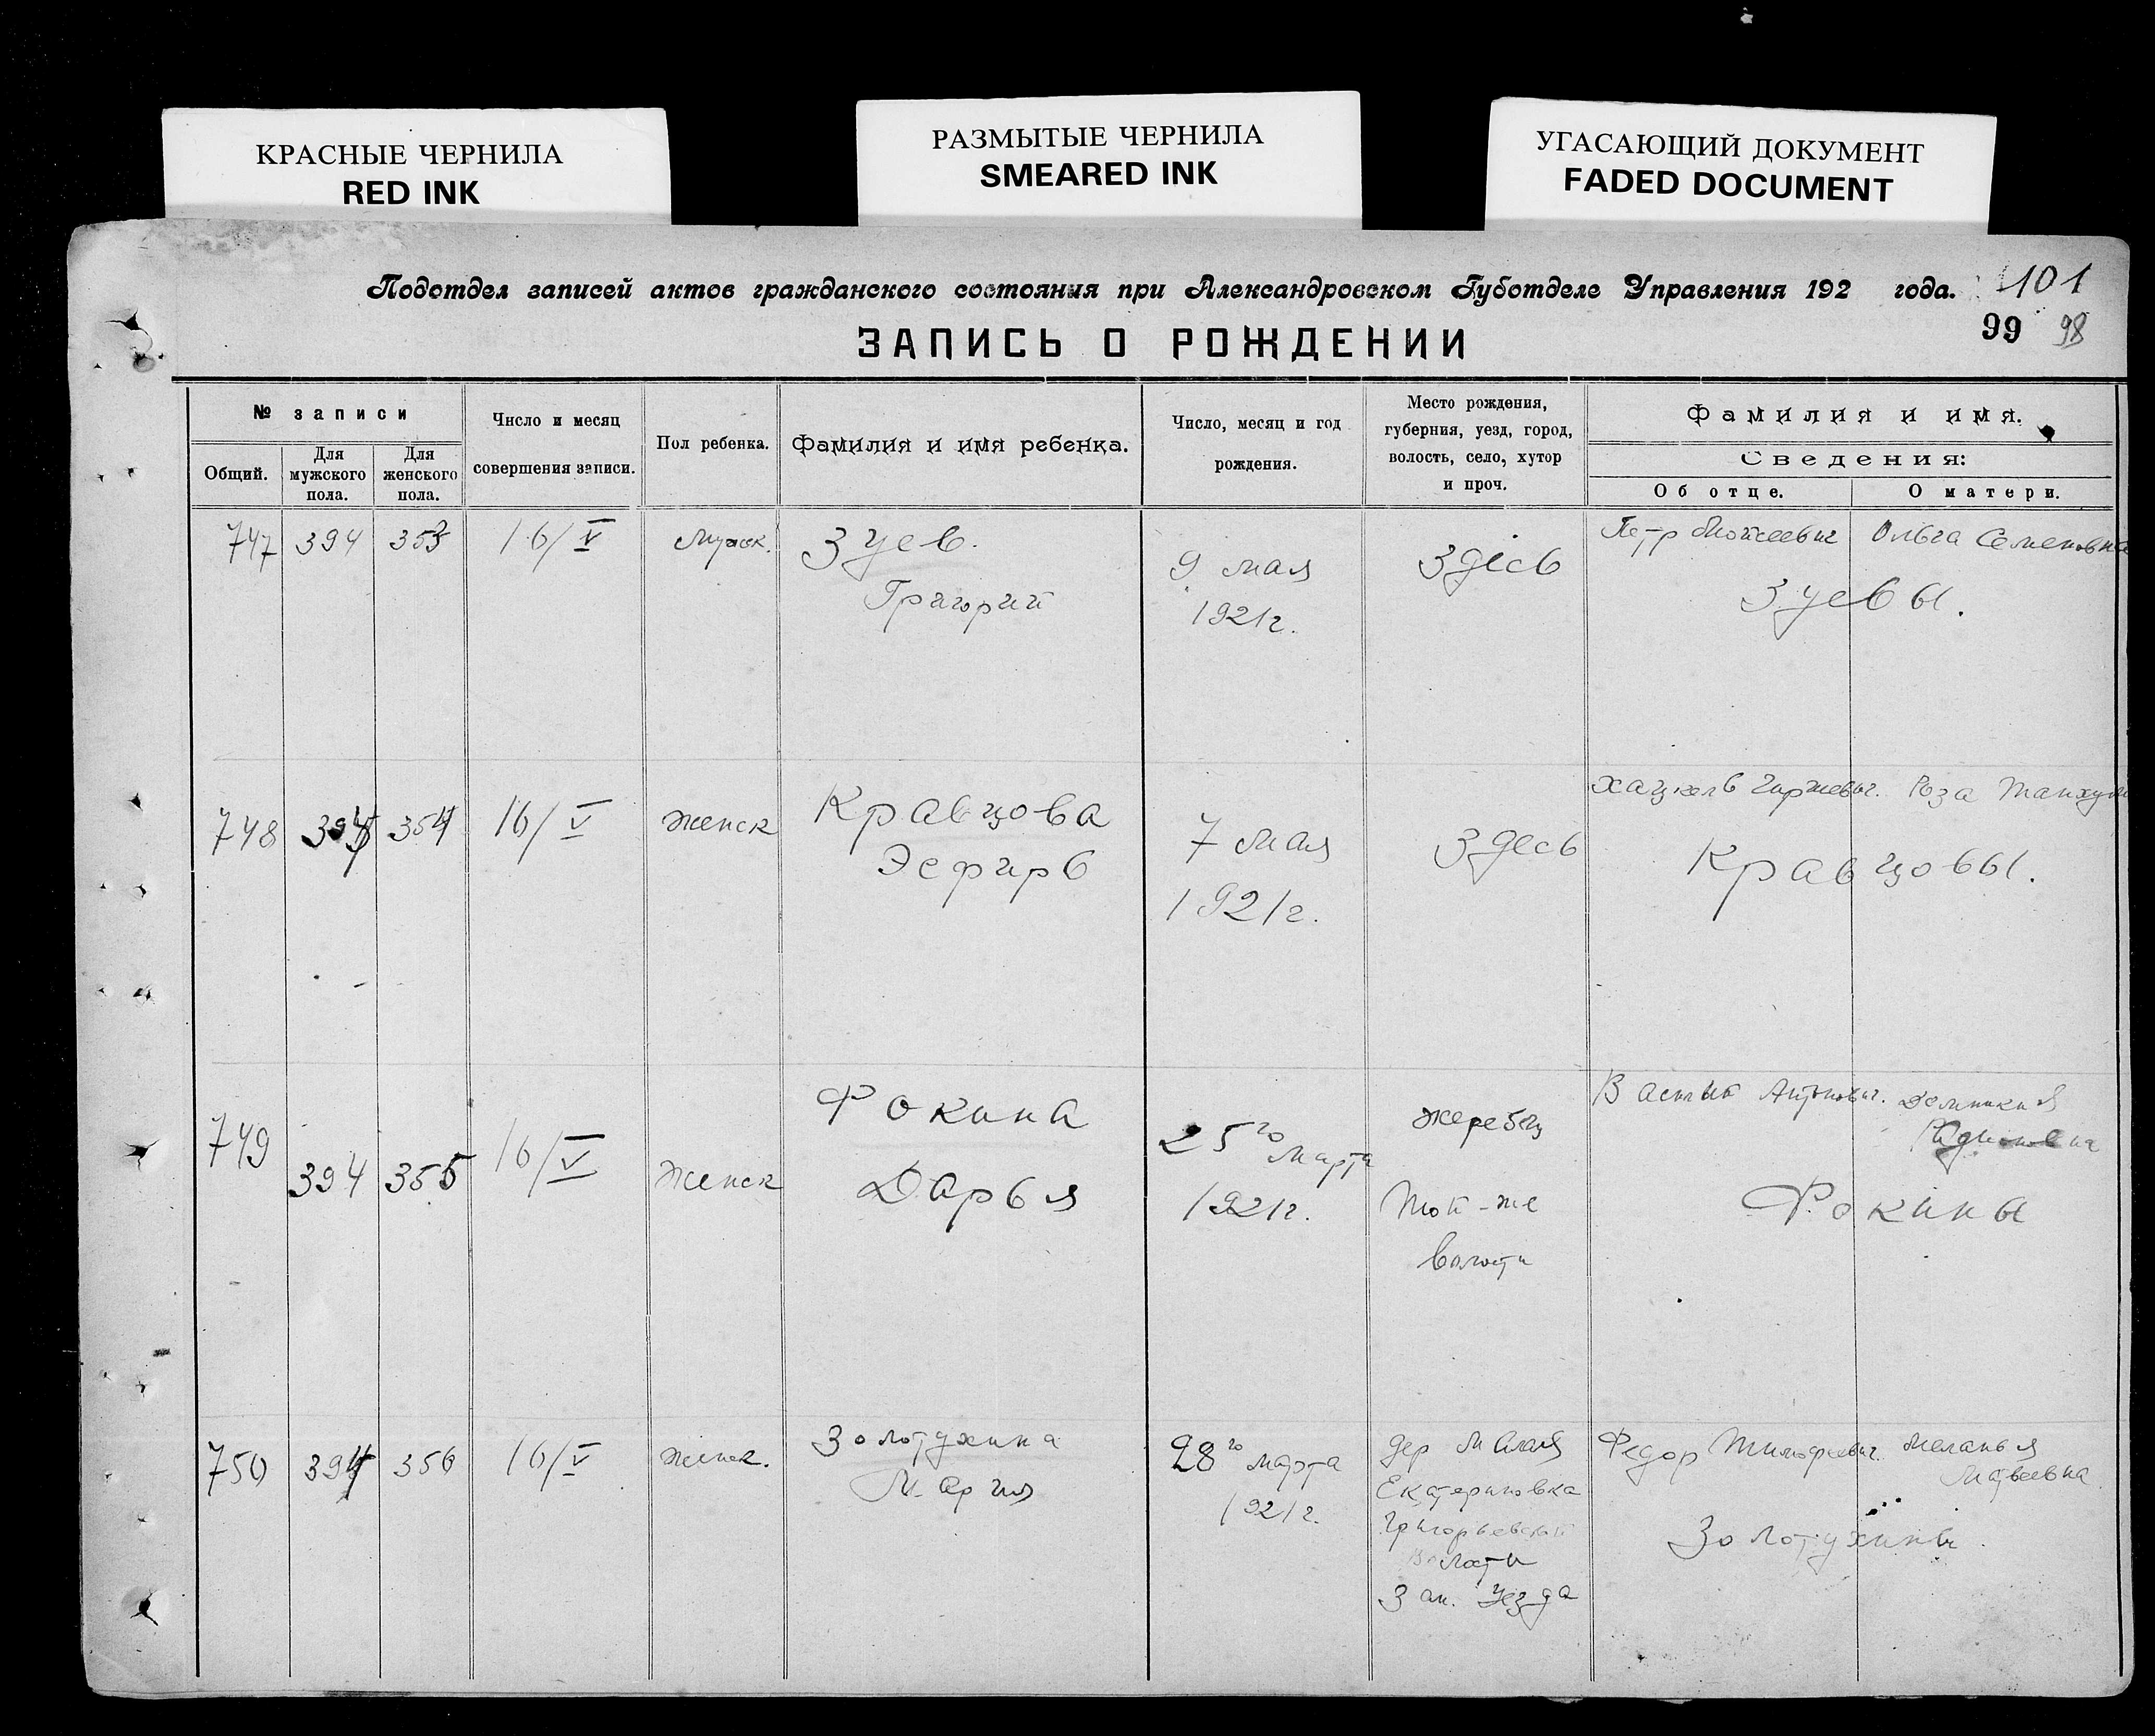 КРАСНЫЕ ЧЕРНИЛА
RED INK
РАЗМЫТЫЕ ЧЕРНИЛА
SMEARED INK
УГАСАЮЩИЙ ДОКУМЕНТ
FADED DOCUMENT
Подотдел записей актов гражданского состояния при Александровском Губотделе Управления 192 года. 101
99 98
ЗАПИСЬ О РОЖДЕНИИ
№ записи
Общий.
Для мужского пола.
Для женского пола.
Число и месяц
совершения записи.
Пол ребенка.
Фамилия и имя ребенка.
Число, месяц и год
рождения.
Место рождения,
губерния, уезд, город,
волость, село, хутор
и проч.
Фамилия и имя.
Сведения:
Об отце.
О матери.
747 394 353 16/V Мужск. Зуев.
Григорий
9 мая
1921г.
Здесь
Петр Мойсеевич Ольга Семеновна
Зуевы.
748 394 354 16/V Женск Кравцова
Эсфирь
7 мая
1921г.
Здесь
Хацкель Гиршевич. Роза
Кравцовы.
749 394 355 16/V Женск Фокина
Дарья
25го марта
1921г.
Жеребец
той-же
волости
Василий Антонович.
Фокины
750 394 356 16/V Женск. Золотухина
Мария
28го марта
1921г.
дер Малая
Екатериновка
Григорьевской
Волости
Зап. Уезда
Федор Тимофеевич. Меланья
Матвеевна
Золотухины.